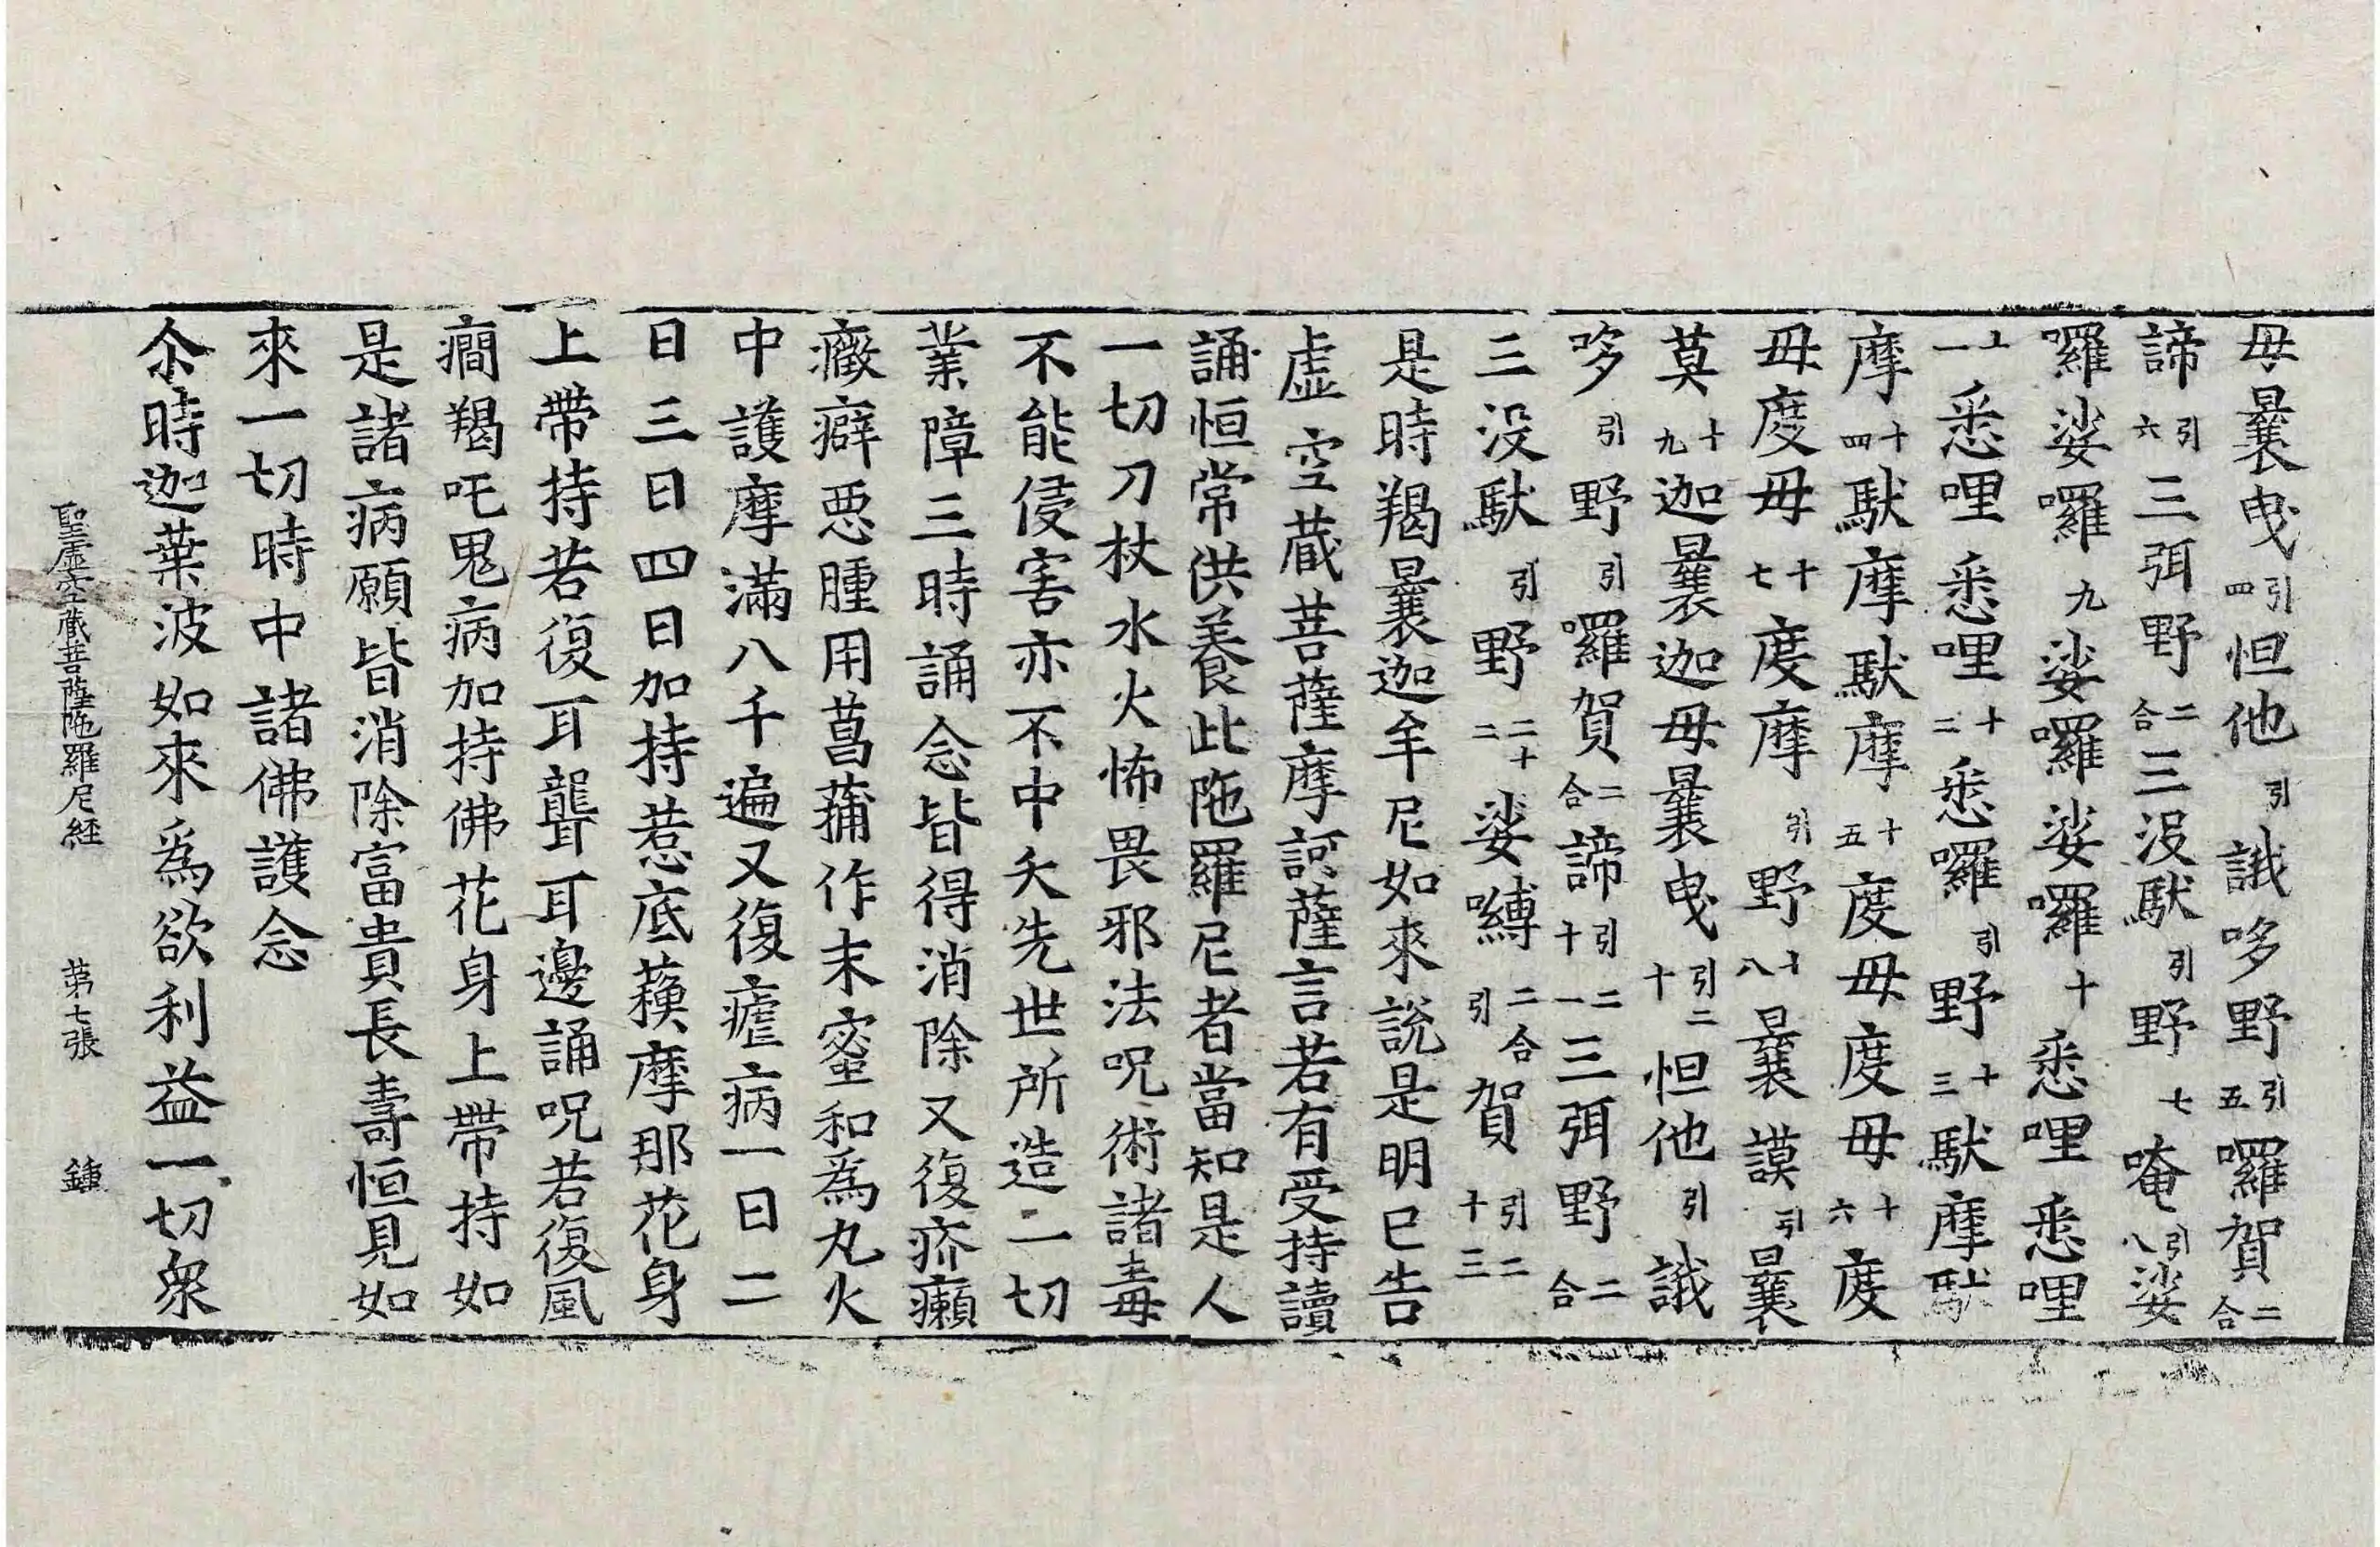 毋曩曳引四怛他引誐哆野引五囉賀二合
諦引六三弭野二合三没馱引野七唵引八娑
囉娑囉九娑囉娑囉十悉哩悉哩
十一悉哩悉哩十二悉囉引野十三馱摩馱
摩十四馱摩馱摩十五度毋度毋十六度
毋度毋十七度摩引野十八曩謨引曩
莫十九迦曩迦毋曩曳引二十怛他引誐
哆引野引囉賀二合諦引二十一三弭野二合
三没馱引野二十二娑嚩二合引賀引二十三
是時羯曩迦牟尼如來說是明已告
虛空藏菩薩摩訶薩言若有受持讀
誦恒常供養此陁羅尼者當知是人
一切刀杖水火怖畏邪法呪術諸毒
不能侵害亦不中夭先世所造一切
業障三時誦念皆得消除又復疥癩
癥癖惡腫用菖蒲作末蜜和為丸火
中護摩滿八千遍又復瘧病一日二
日三日四日加持惹底蘓摩那花身
上帶持若復耳聾耳邊誦呪若復風
癎羯吒鬼病加持佛花身上帶持如
是諸病願皆消除富貴長壽恒見如
來一切時中諸佛護念
尒時迦葉波如來為欲利益一切衆
聖虛空藏菩薩陁羅尼経 第七張 鍾